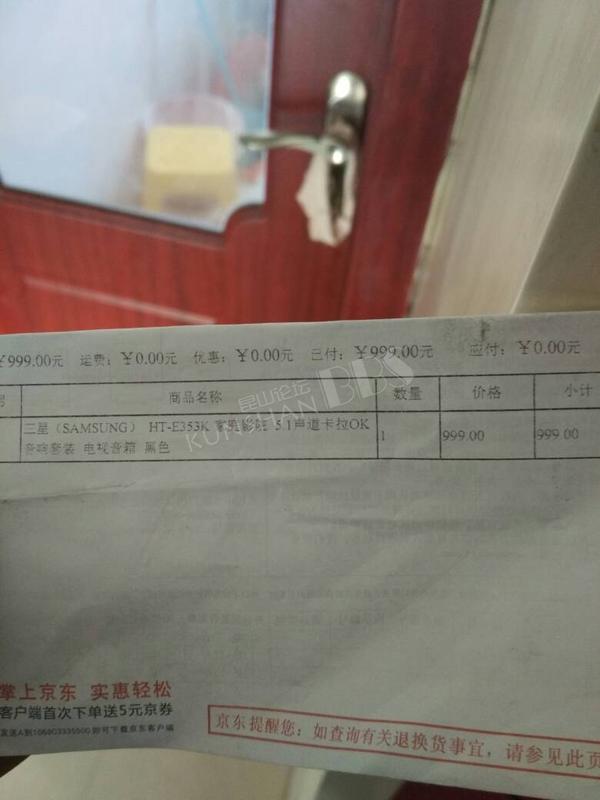 ¥999.00元 运费：¥0.00元 优惠：¥0.00元 已付：¥999.00元 应付：¥0.00元
号 商品名称 数量 价格 小计
三星（SAMSUNG） HT-E353K 家庭影院 5.1声道卡拉OK 1 999.00 999.00
音响套装 电视音箱 黑色
昆山论坛
KUNSHAN BBS
掌上京东 实惠轻松
客户端首次下单送5元京券
发送A到1069033355500即可下载京东客户端
京东提醒您：如查询有关退换货事宜，请参见此页